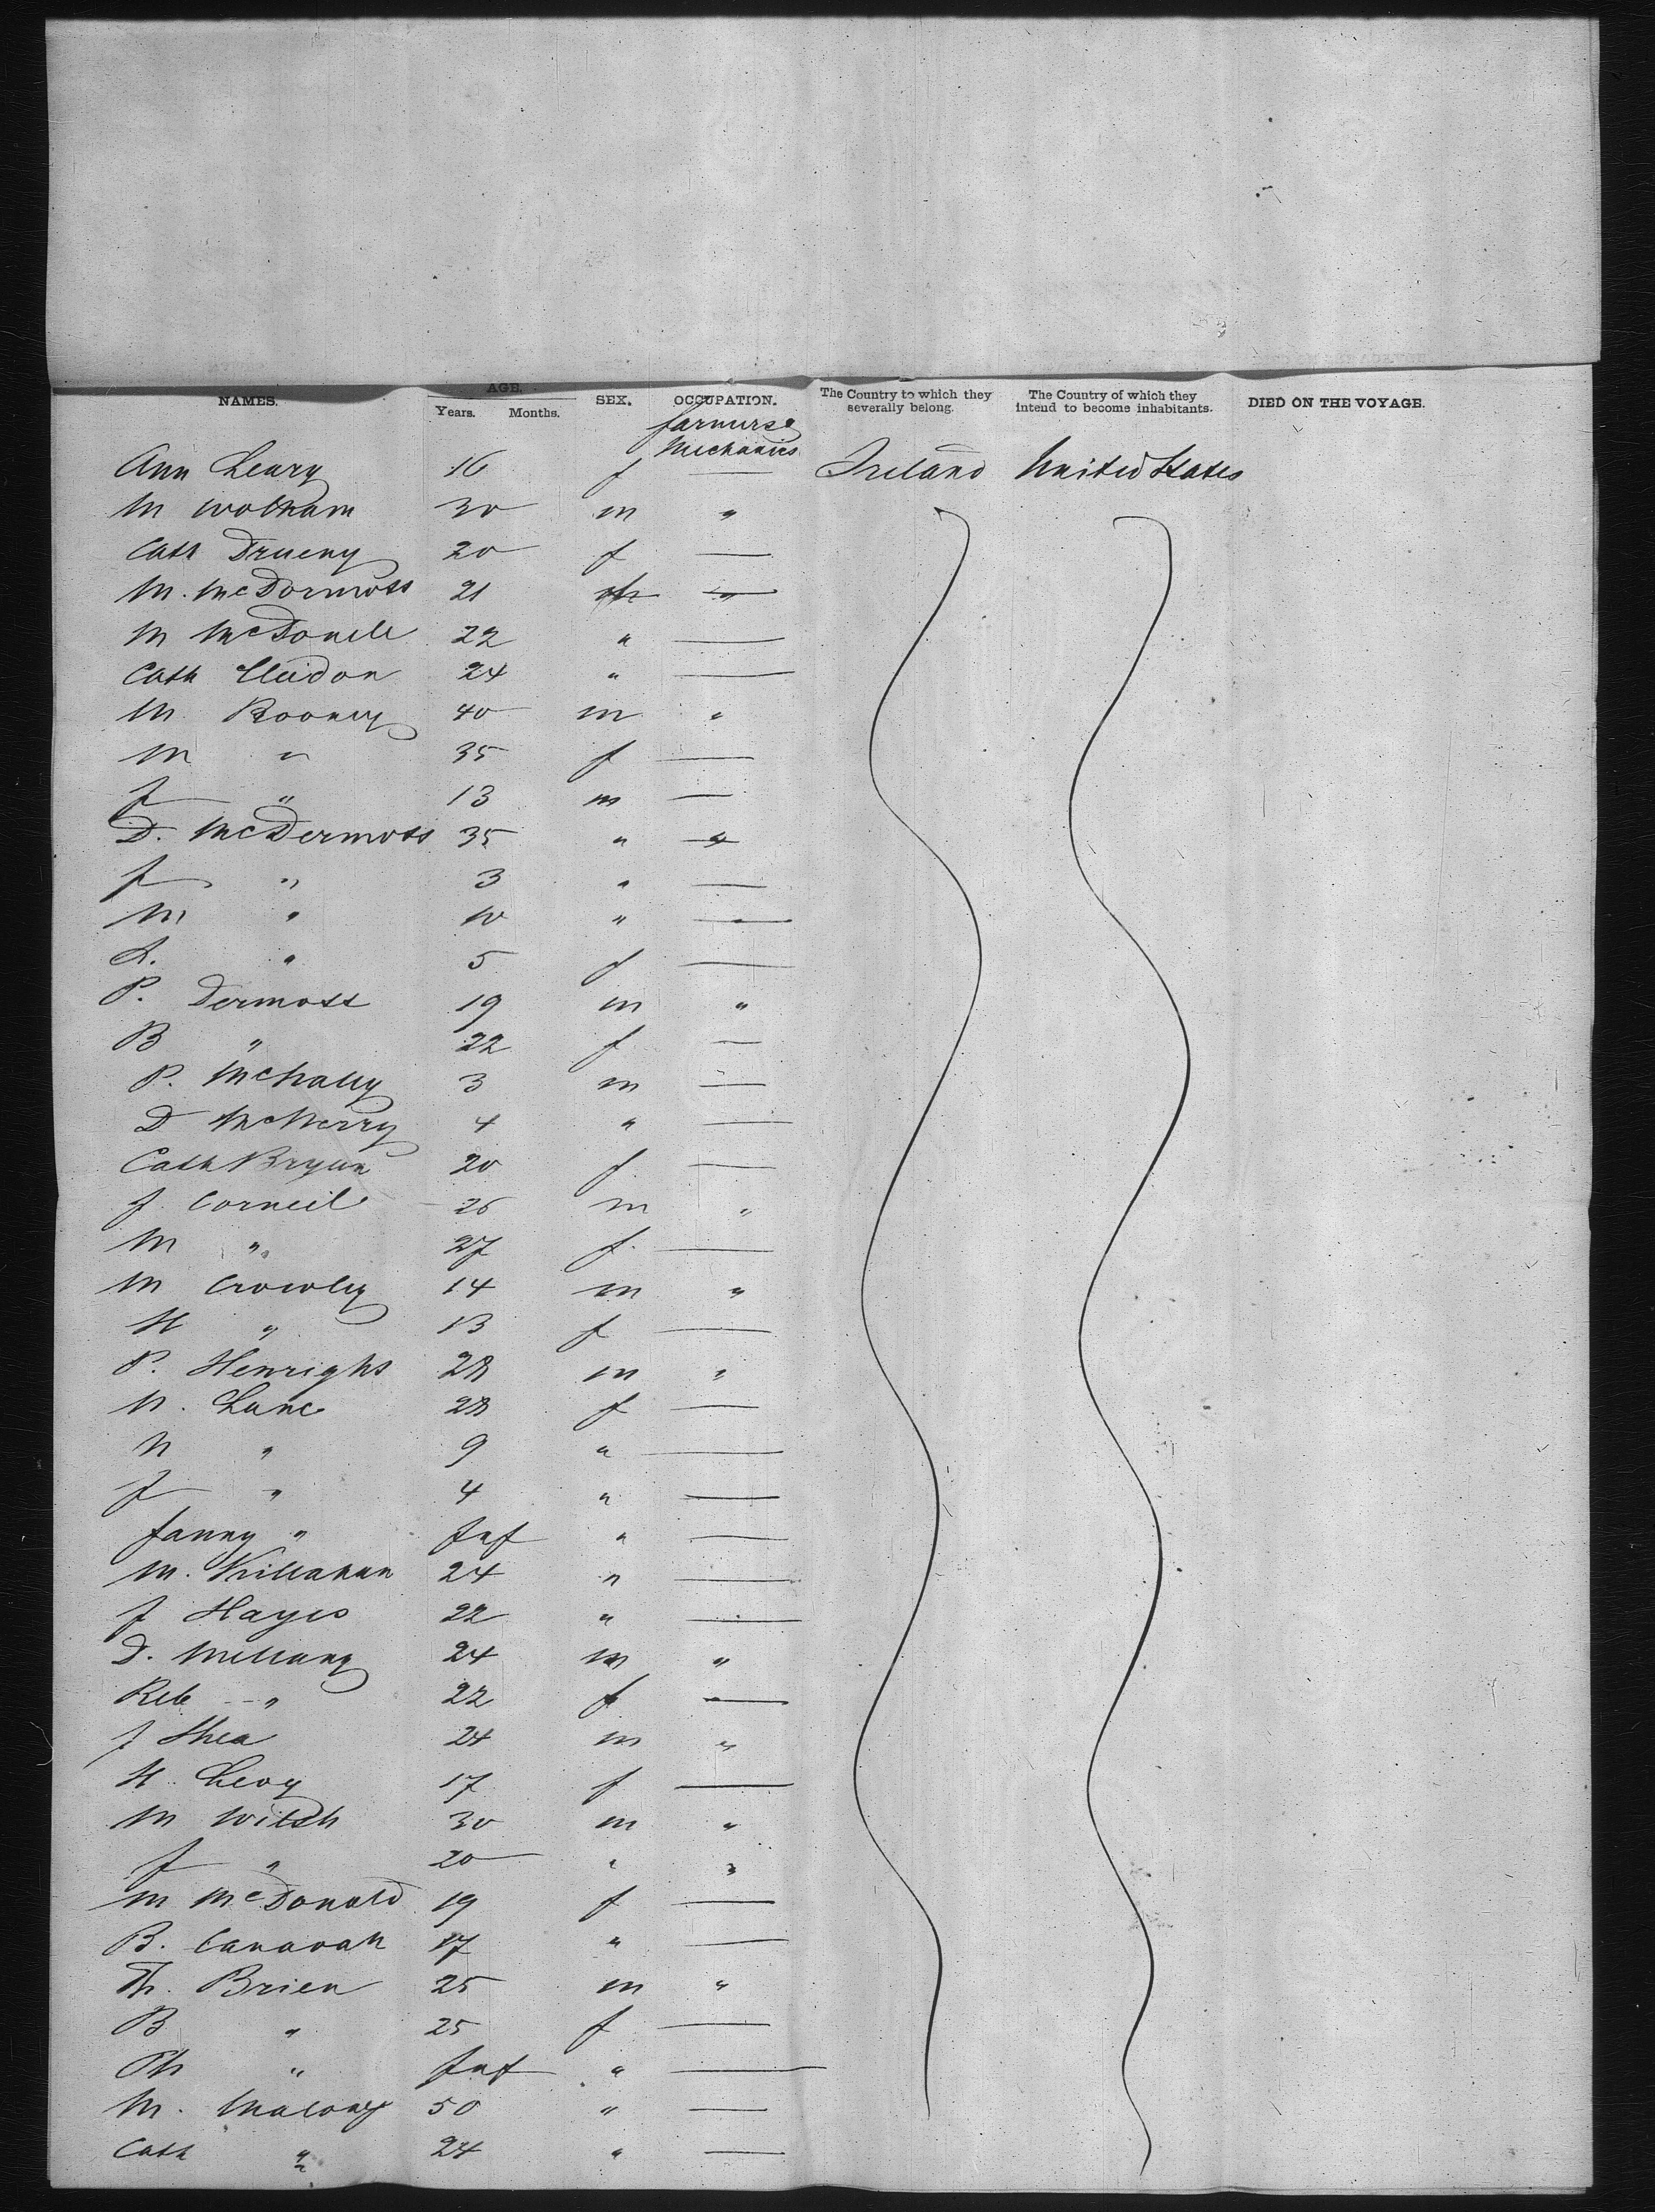 NAMES. AGE. Years. Months. SEX. OCCUPATION. The Country to which they severally belong. The Country of which they intend to become inhabitants. DIED ON THE VOYAGE.
farmurs &
Mechanics
Ann Leary 16 f — Ireland United States
M Wolham 30 m "
Cath 20 f —
M. McDormott 21
M McDonell 22 " —
Cath 24 " —
M Rooney 40 m "
M " 35 f —
J " 13 m —
D. McDermott 35 "
J " 3 " —
M " 10 " —
A. " 5 f —
P. Dermott 19 m "
B " 22 f —
P. McNally 3 m —
D 4 " —
Cath Bryan 20 f —
J. Corneil 26 m "
M " 27 f —
M Crowley 14 m "
H " 13 f —
P. Henright 28 m "
N. Lane 28 f —
N " 9 " —
J " 4 " —
Fanny " Inf " —
M. 24 " —
J Hayes 22 " —
D. 24 m "
Reb " 22 f —
J Shea 24 m "
H. Levy 17 f —
M Wilsh 30 m "
J " 20 " "
M McDonald 19 f —
B. Canavan 17 " —
Th. Brien 25 m "
B " 25 f —
Th " Inf " —
M. Malony 50 " —
Cath " 24 " —